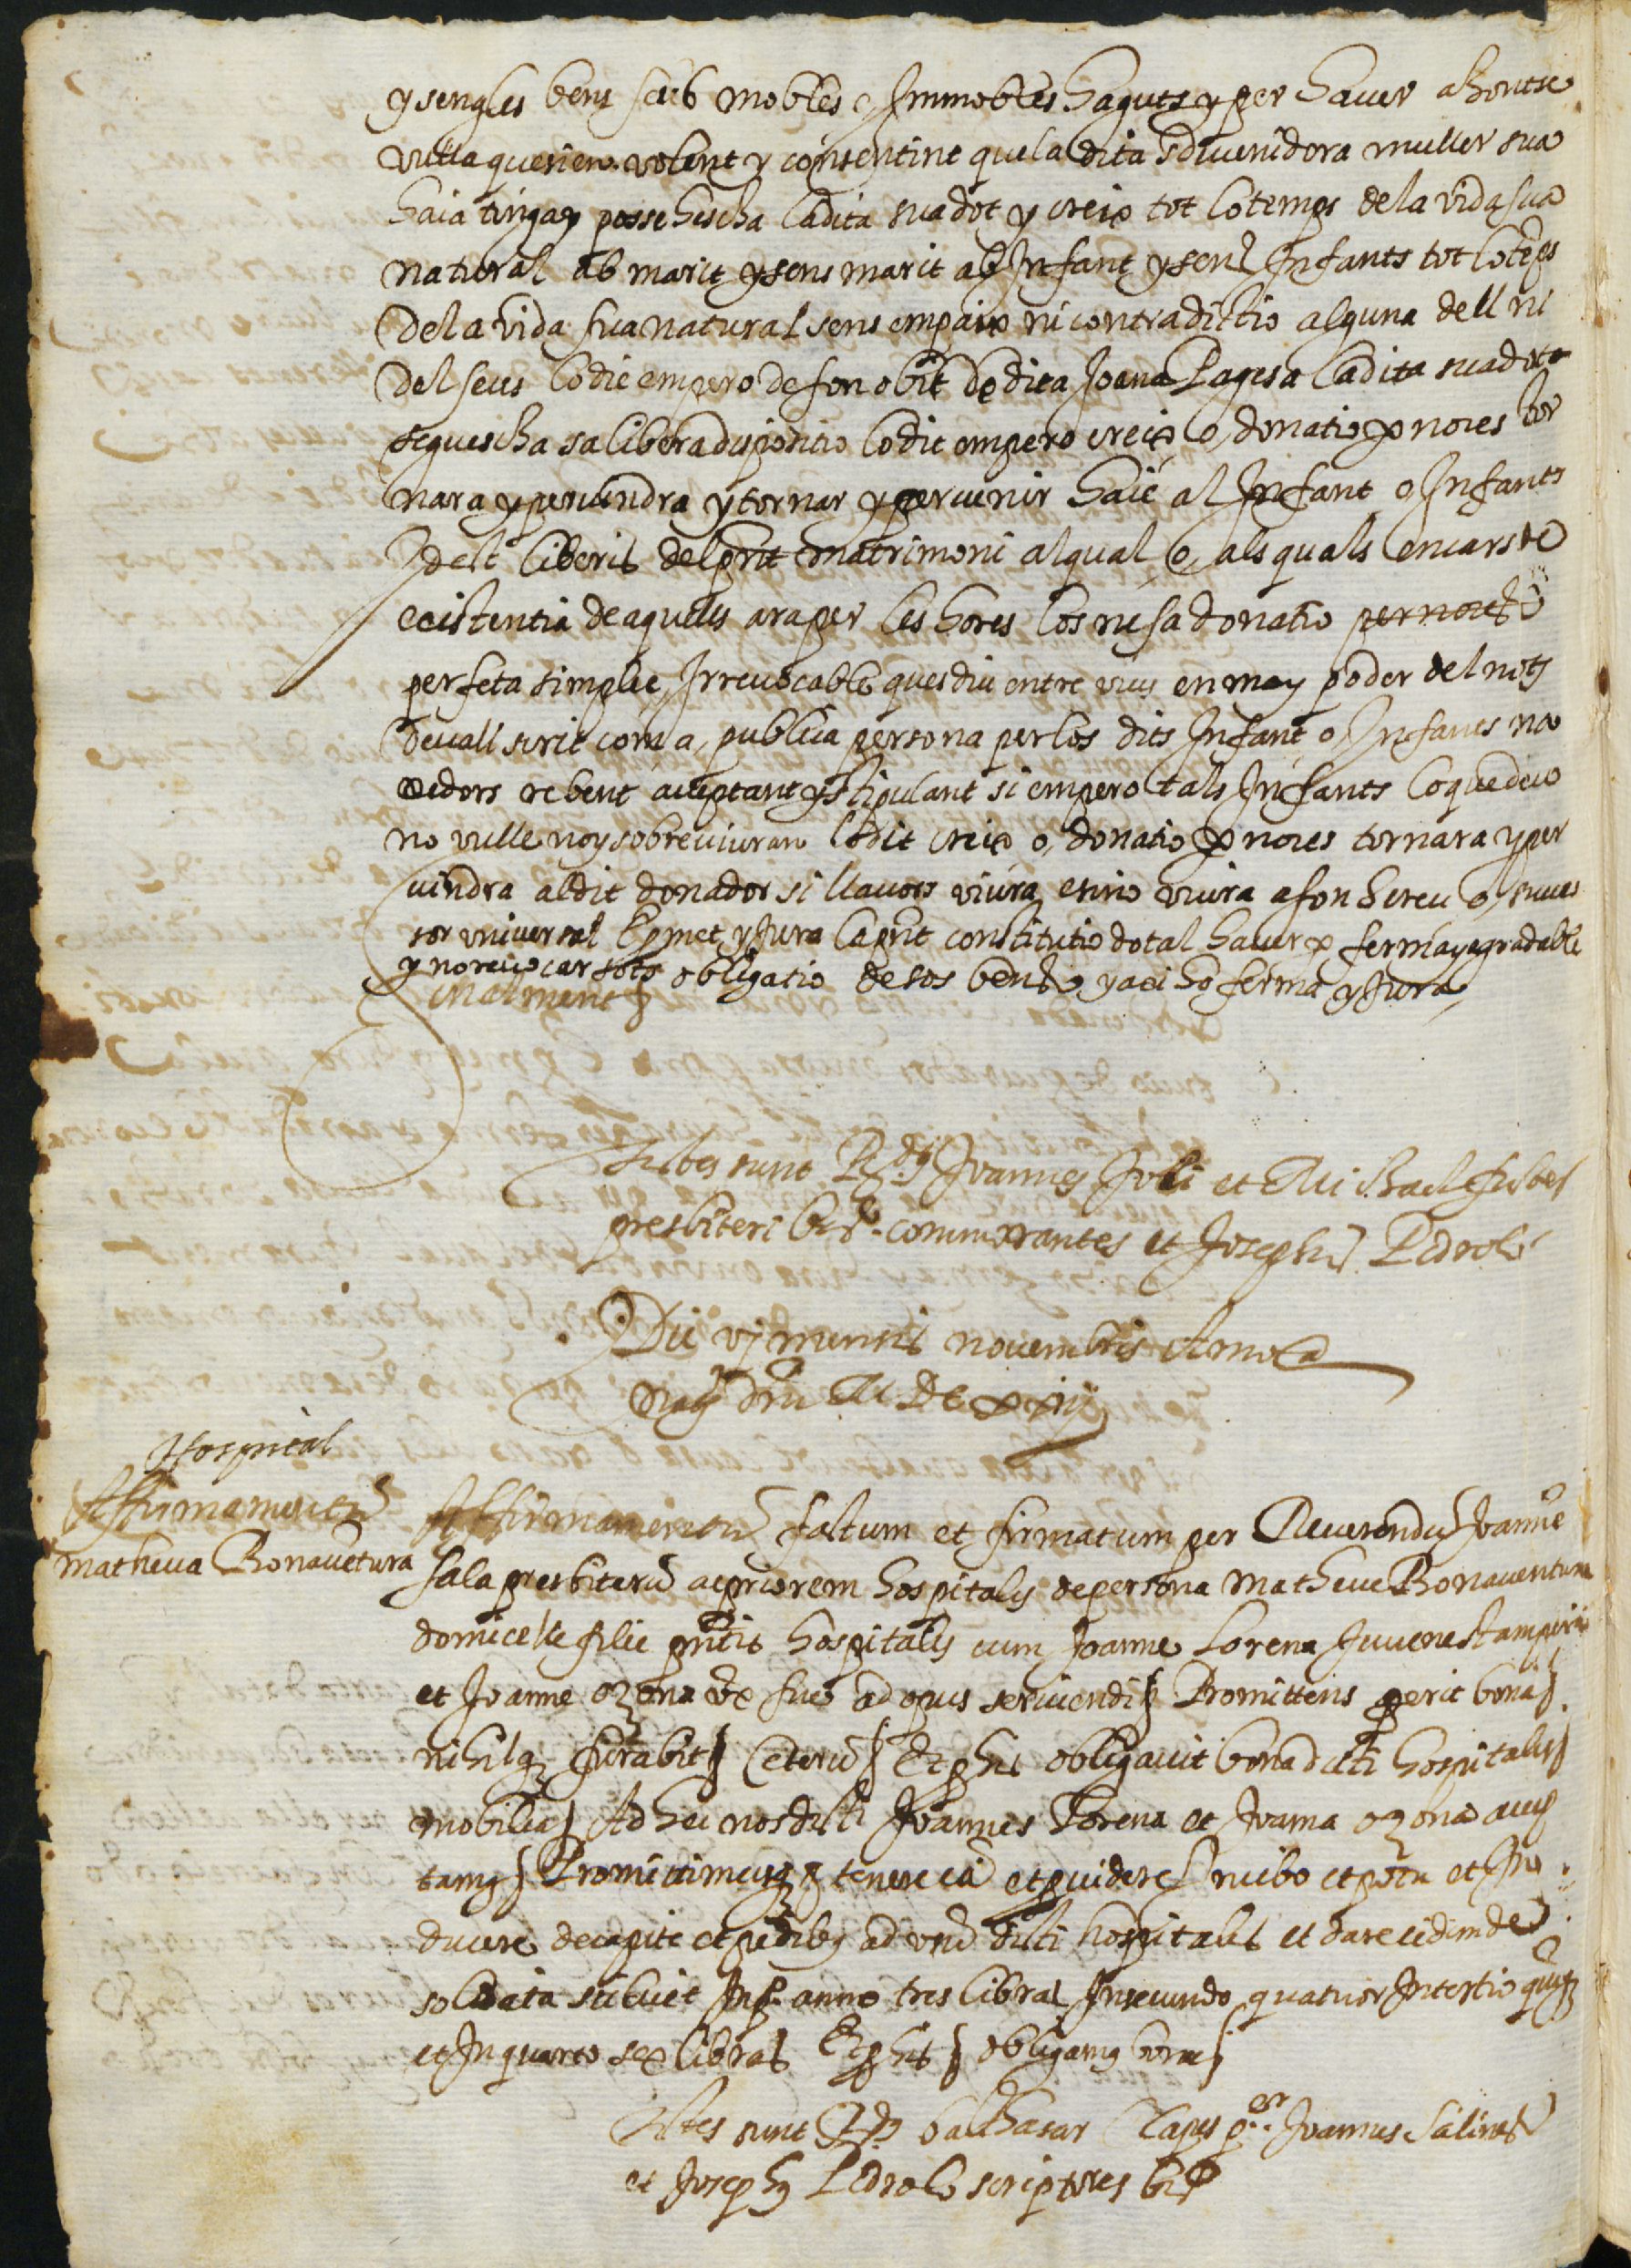 y sengles bens seus mobles e Immobles haguts y per haver ahontse
vulla que sien volent y consentint que la dita sdevenidora muller sua
haia tinga y possehischa la dita sua dot y creix tot lo temps de la vida sua
natural ab marit y sens marit ab Infant y sens Infants tot lo temps
de la vida sua natural sens empaix ni contradictio alguna dell ni
dels seus lo die empero de son obit de dita Joana Pagesa la dita sua dot
seguescha sa libera dispositio lo dit empero creix o, donatio p noces tor
nara y pervindra y tornar y pervenir haie al Infant o Infants
dels liberis del pnt matrimoni al qual o, als quals encars de
existentia de aquells ara per les hores los ne fa donatio per noces
perfeta simple e Irrevocable ques diu entre vius en ma y poder del notz
devall scrit com a publica persona per los dits Infant o, Infants na
xedors rebent acceptant y stipulant si empero tals Infants lo que deu
no vulle noy sobreviuran lo dit creix o, donatio p noces tornara y per
vindra al dit donador si llavors viura e si no viura a son hereu o, succes
sor universal E pmet y Jura la pnt constitutio dotal haver p ferma y agradable
y no revocar sots obligatio de sos bens y axi ho ferma y Jura
Testes sunt Rds Joannes Joli et Michael
presbiteri commorantes et Josephus Pedrol
Die vj mensis novembris Anno a
Nat dni M DC xiiij
Hospital
Affirmamentum
matheva Bonaventura
Affirmamentum factum et firmatum per Reverendu Joanne
Sala presbiteru ac priorem hospitalis de persona Matheve Bonaventura
domicelle filie pntis hospitalis cum Joanne Lorena Juvene
et Joanna ozona ux sue ad opus serviendi Promittens erit bona
nihilq furabit Ceteru Et p his obligavit bona dicti hospitalis
mobilia Ad hec nos dicti Joannes Lorena et Joanna ozona accep
tams Promittimusq tenere ea et pvidere In cibo et potu et In
ducere de capite et pedibs ad usu dicti hospitalis et dare eidem de
solidata sicuet In p anno tres libras In secundo quatuor In tertio quinq
et In quarto sex libras Et p his obligams bona
Testes sunt Rds balthasar Clapes pr Joannes Salinas
et Josephs Pedrol scriptores